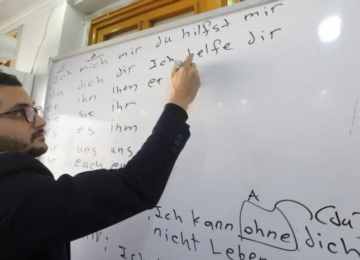 ich mich mir du hilfst mir
dich dir Ich helfe dir
ihn ihm er
sie ihr
es ihm
uns uns
euch
A
Ich kann ohne (du
nicht Leben dich
Ich